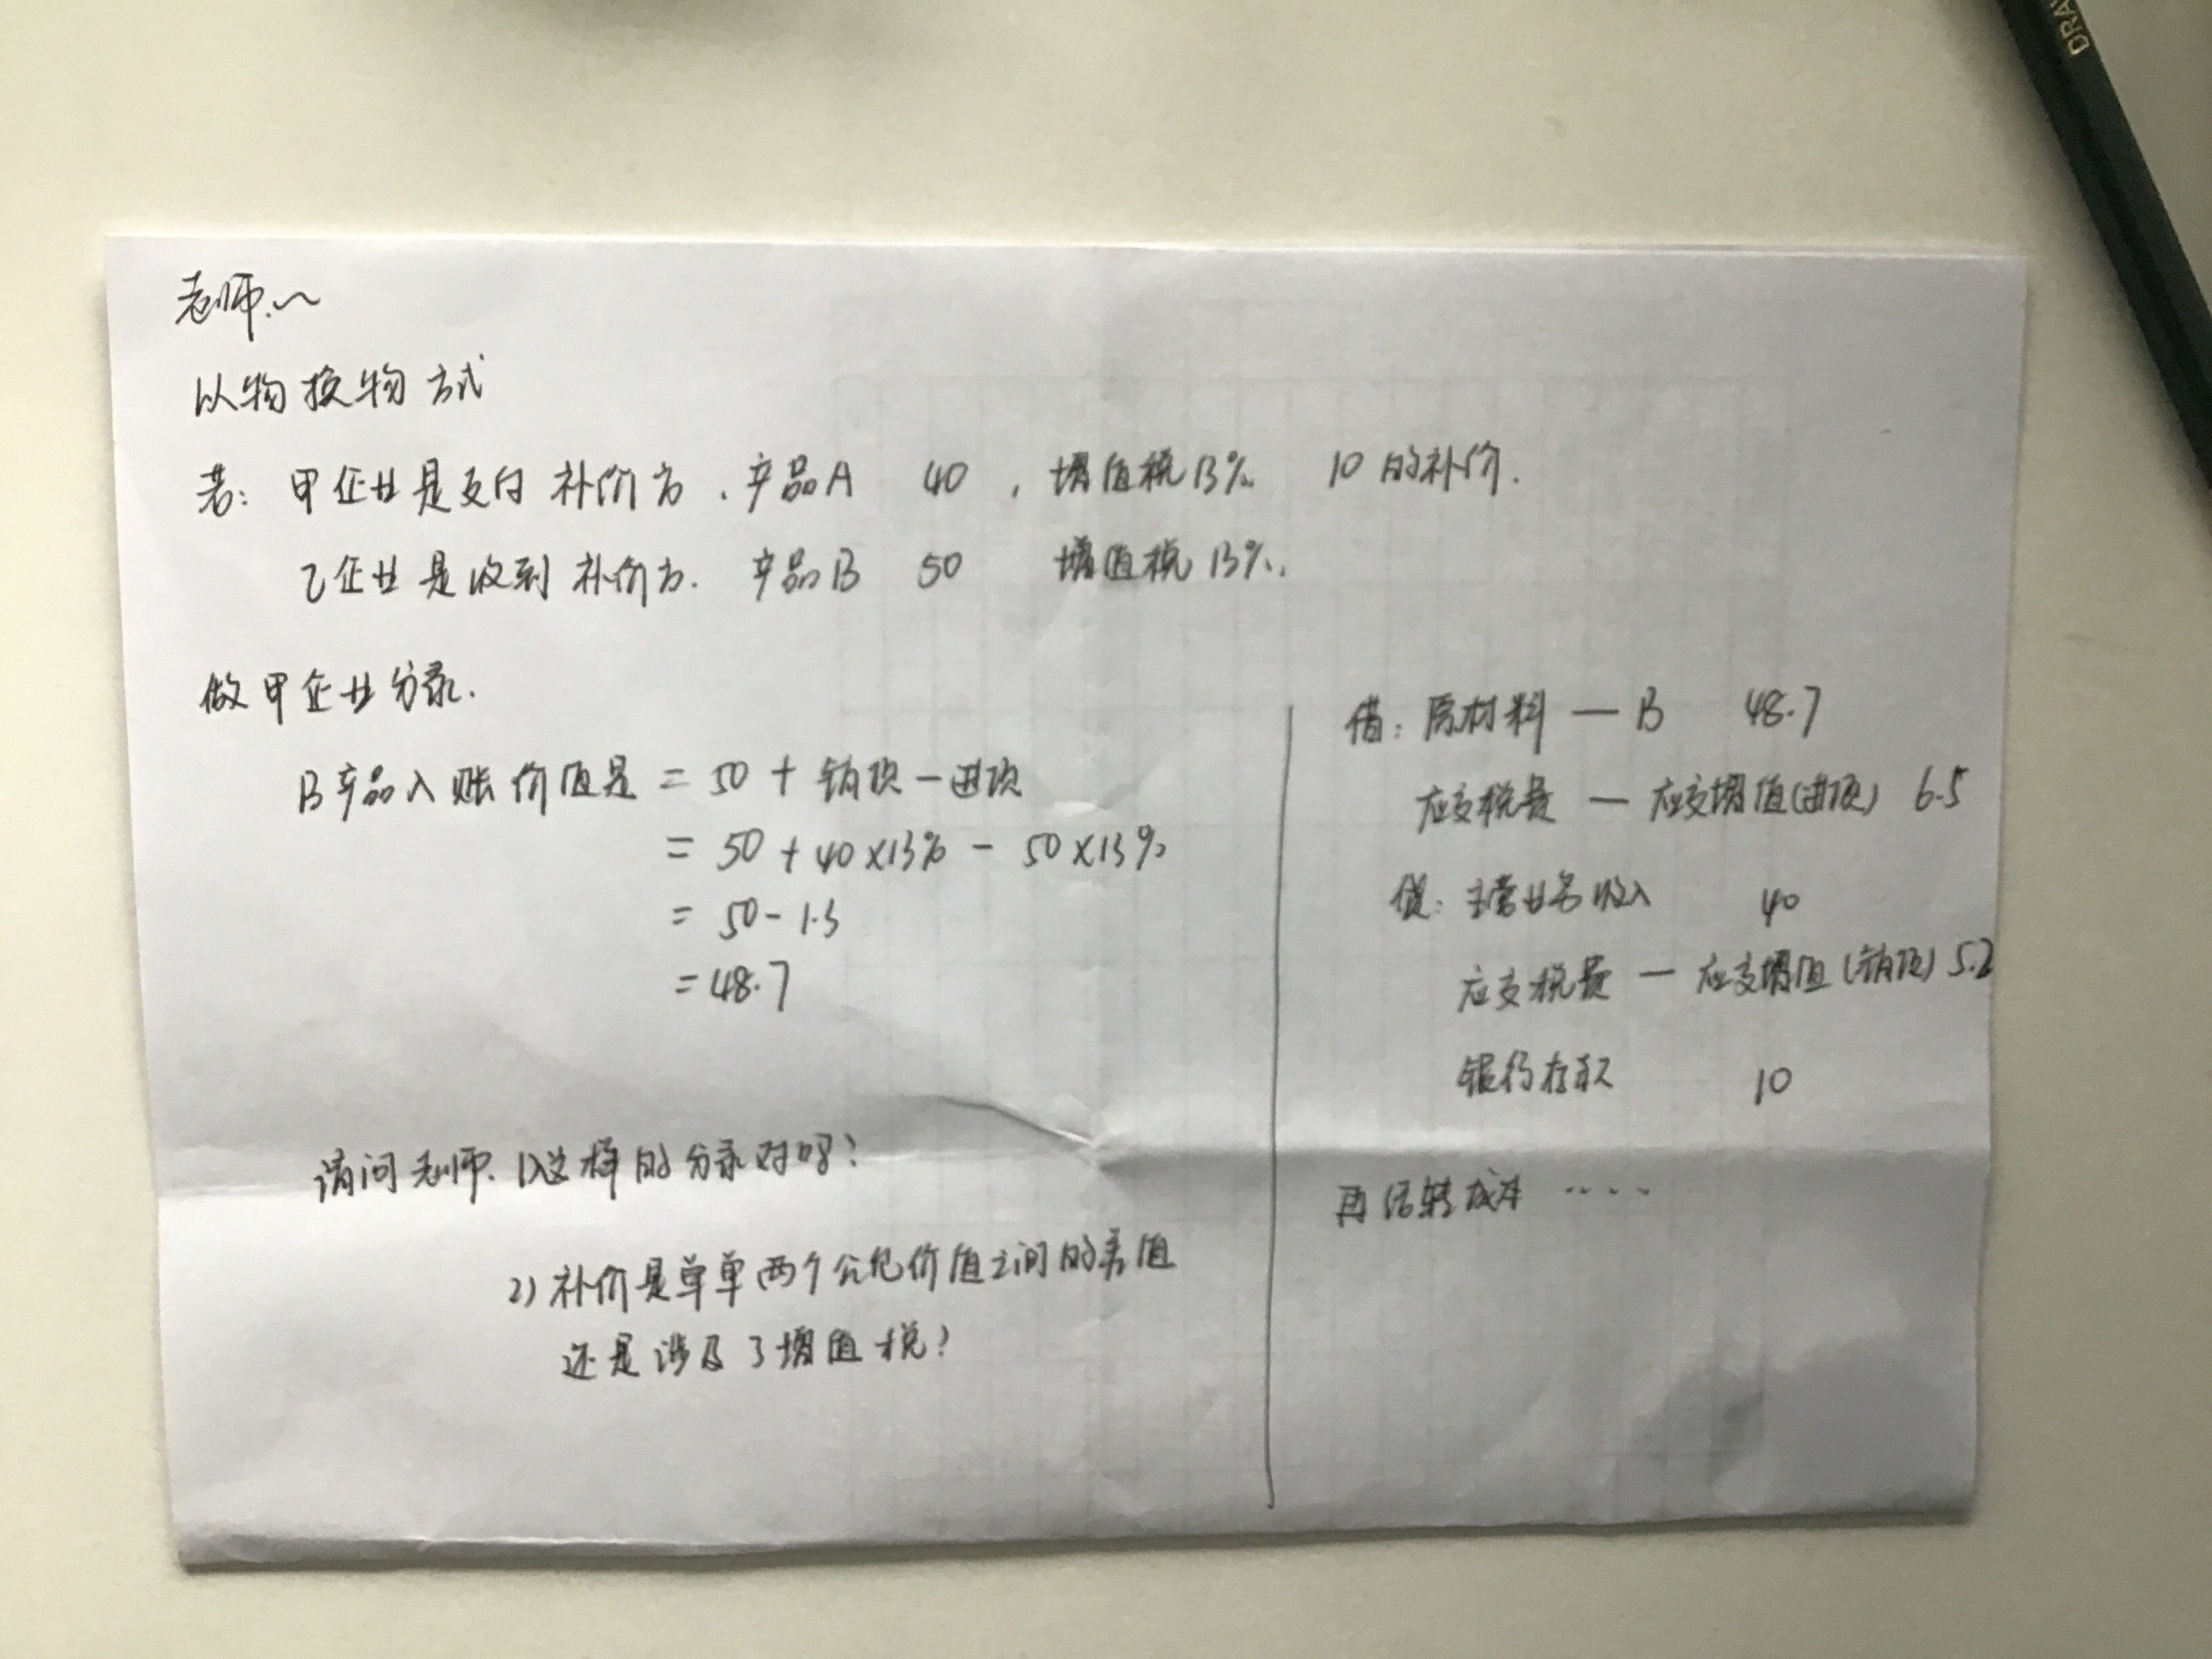 老师~
以物换物方式
若：甲企业是支付补价方．产品A 40，增值税13% 10的补价．
乙企业是收到补价方．产品B 50 增值税13%．
做甲企业分录．
B产品入账价值是 = 50 + 销项 - 进项
= 50 + 40×13% - 50×13%
= 50 - 1.3
= 48.7
请问老师．1)这样的分录对吗？
2) 补价是单单两个公允价值之间的差值
还是涉及了增值税？
借：原材料 — B 48.7
应交税费 — 应交增值(进项) 6.5
贷：主营业务收入 40
应交税费 — 应交增值(销项) 5.2
银行存款 10
再结转成本 ····
DRAW